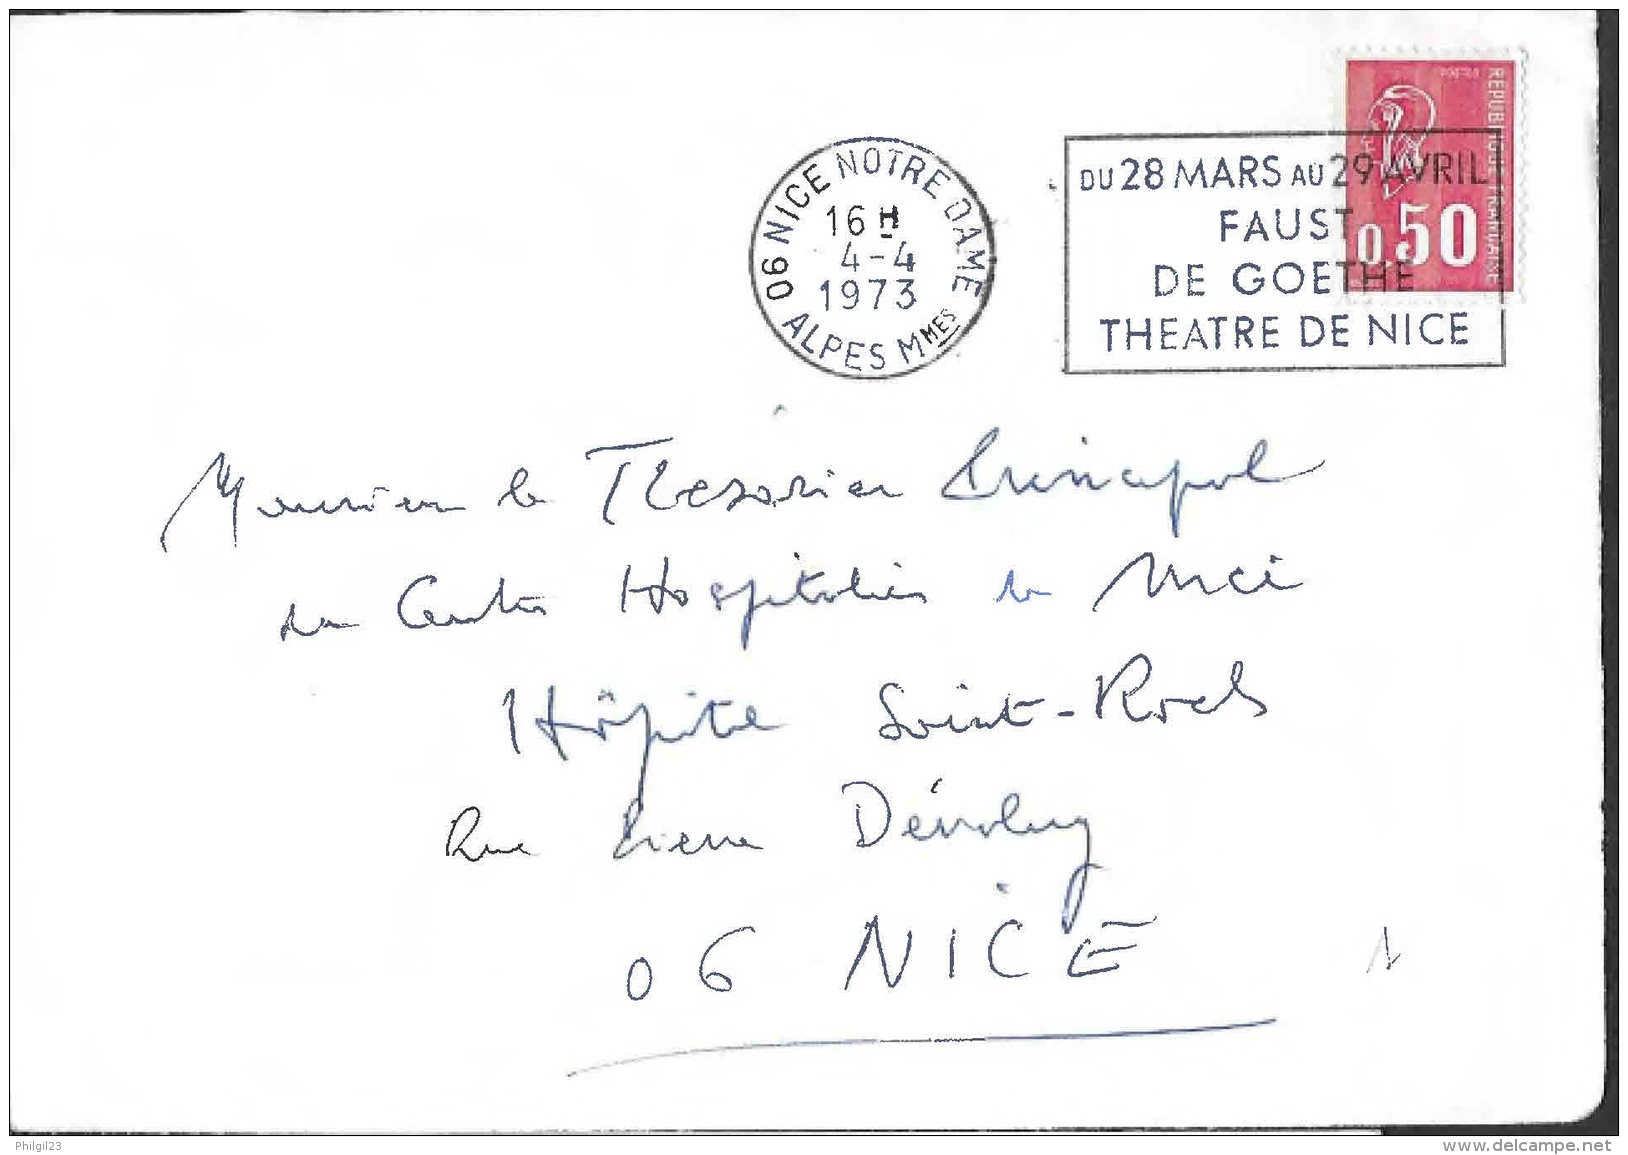 REPUBLIQUE FRANCAISE
0,50
06 NICE NOTRE DAME
16 H
4-4
1973
ALPES MMES
DU 28 MARS AU 29 AVRIL
FAUST
DE GOETHE
THEATRE DE NICE
Monsieur le Thésorier Principal
du Centre Hospitalier de Nice
Hôpital Saint-Roch
Rue Pierre Dévoluy
06 NICE
Philgil23
www.delcampe.net